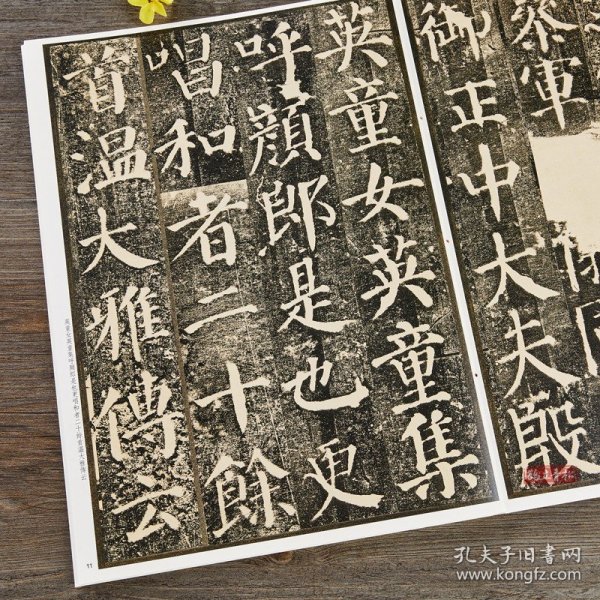 軍
御正中大夫殷
英童女英童集
呼顏郎是也更
唱和者二十餘
首温大雅傳云
英童女英童集呼顏郎是也更唱和者二十餘首温大雅傳云
11
孔夫子旧書网
www.kongfz.com